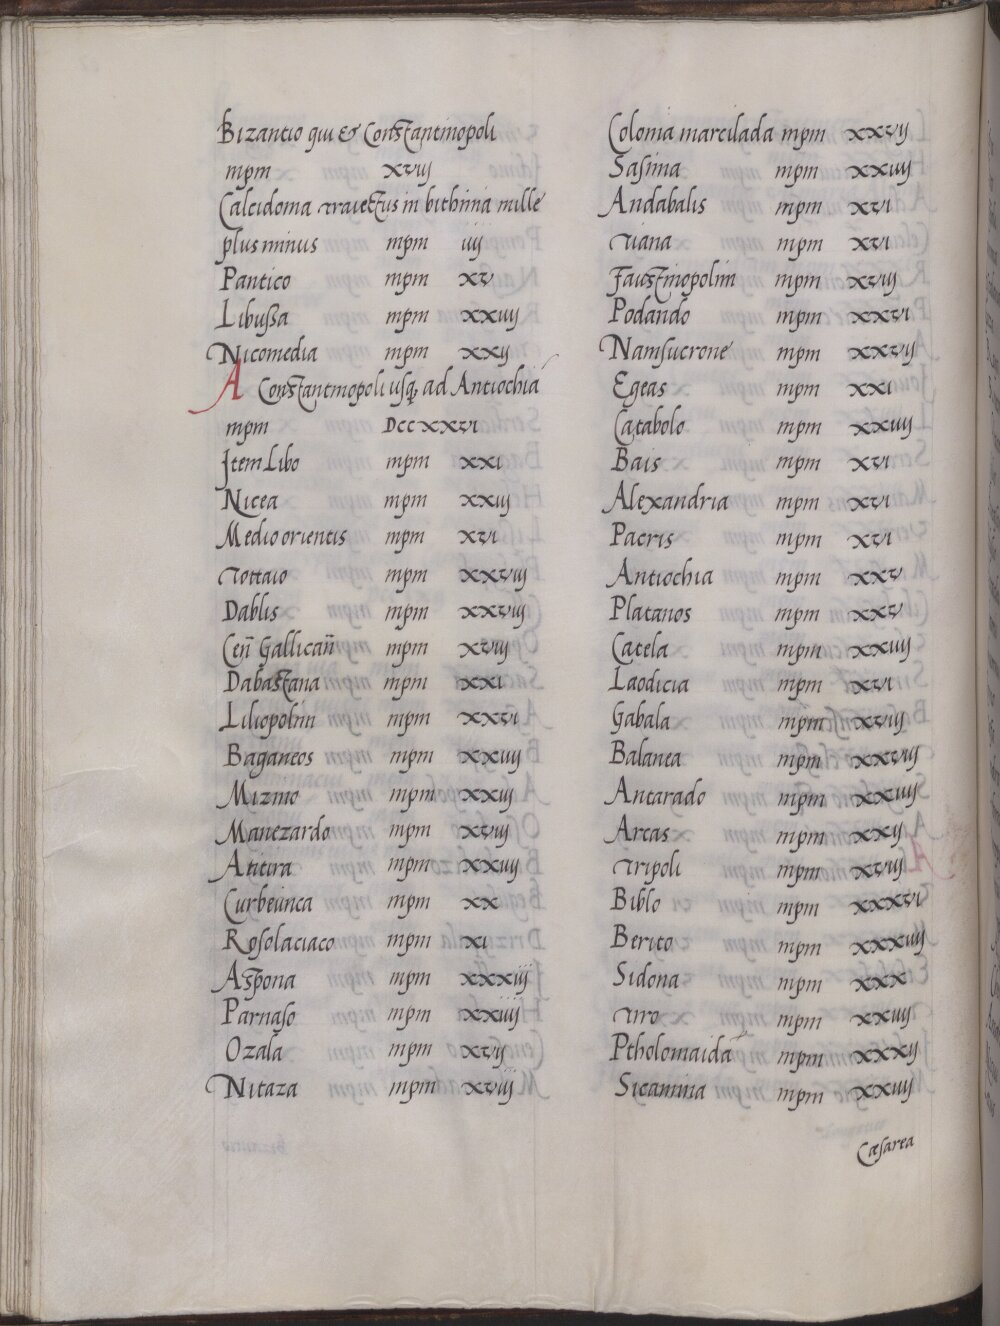 Bizantio qui & Constantinopoli
mpm xviij
Calcidonia traiectus in bithinia mille
plus minus mpm iiij
Pantico mpm xv
Libussa mpm xxiiij
Nicomedia mpm xxij
A Constantinopoli usq; ad Antiochiā
mpm Dccxxvi
Item Libo mpm xxi
Nicea mpm xxiij
Medio orientis mpm xvi
Tottaio mpm xxviij
Dablis mpm xxviij
Ceñ Gallicañ mpm xviij
Dabastana mpm xxi
Liliopolim mpm xxvi
Baganeos mpm xxiiij
Mizmo mpm xxiij
Manezardo mpm xviij
Aticira mpm xxiiij
Curbeunca mpm xx
Rosolaciaco mpm xi
Aspona mpm xxxiij
Parnaso mpm xxiiij
Ozala mpm xvij
Nitaza mpm xviij
Colonia marcilada mpm xxvij
Sasima mpm xxiiij
Andabalis mpm xvi
Tiana mpm xvi
Faustinopolim mpm xviij
Podando mpm xxvi
Namsucrone mpm xxvij
Egeas mpm xxi
Catabolo mpm xxiiij
Bais mpm xvi
Alexandria mpm xvi
Pacris mpm xvi
Antiochia mpm xxv
Platanos mpm xxv
Catela mpm xxiiij
Laodicia mpm xvi
Gabala mpm xviij
Balanea mpm xxvij
Antarado mpm xxiiij
Arcas mpm xxij
Tripoli mpm xviij
Biblo mpm xxxvi
Berito mpm xxxiiij
Sidona mpm xxx
Tiro mpm xxiiij
Ptholomaida mpm xxxij
Sicamina mpm xxiiij
Cæsarea